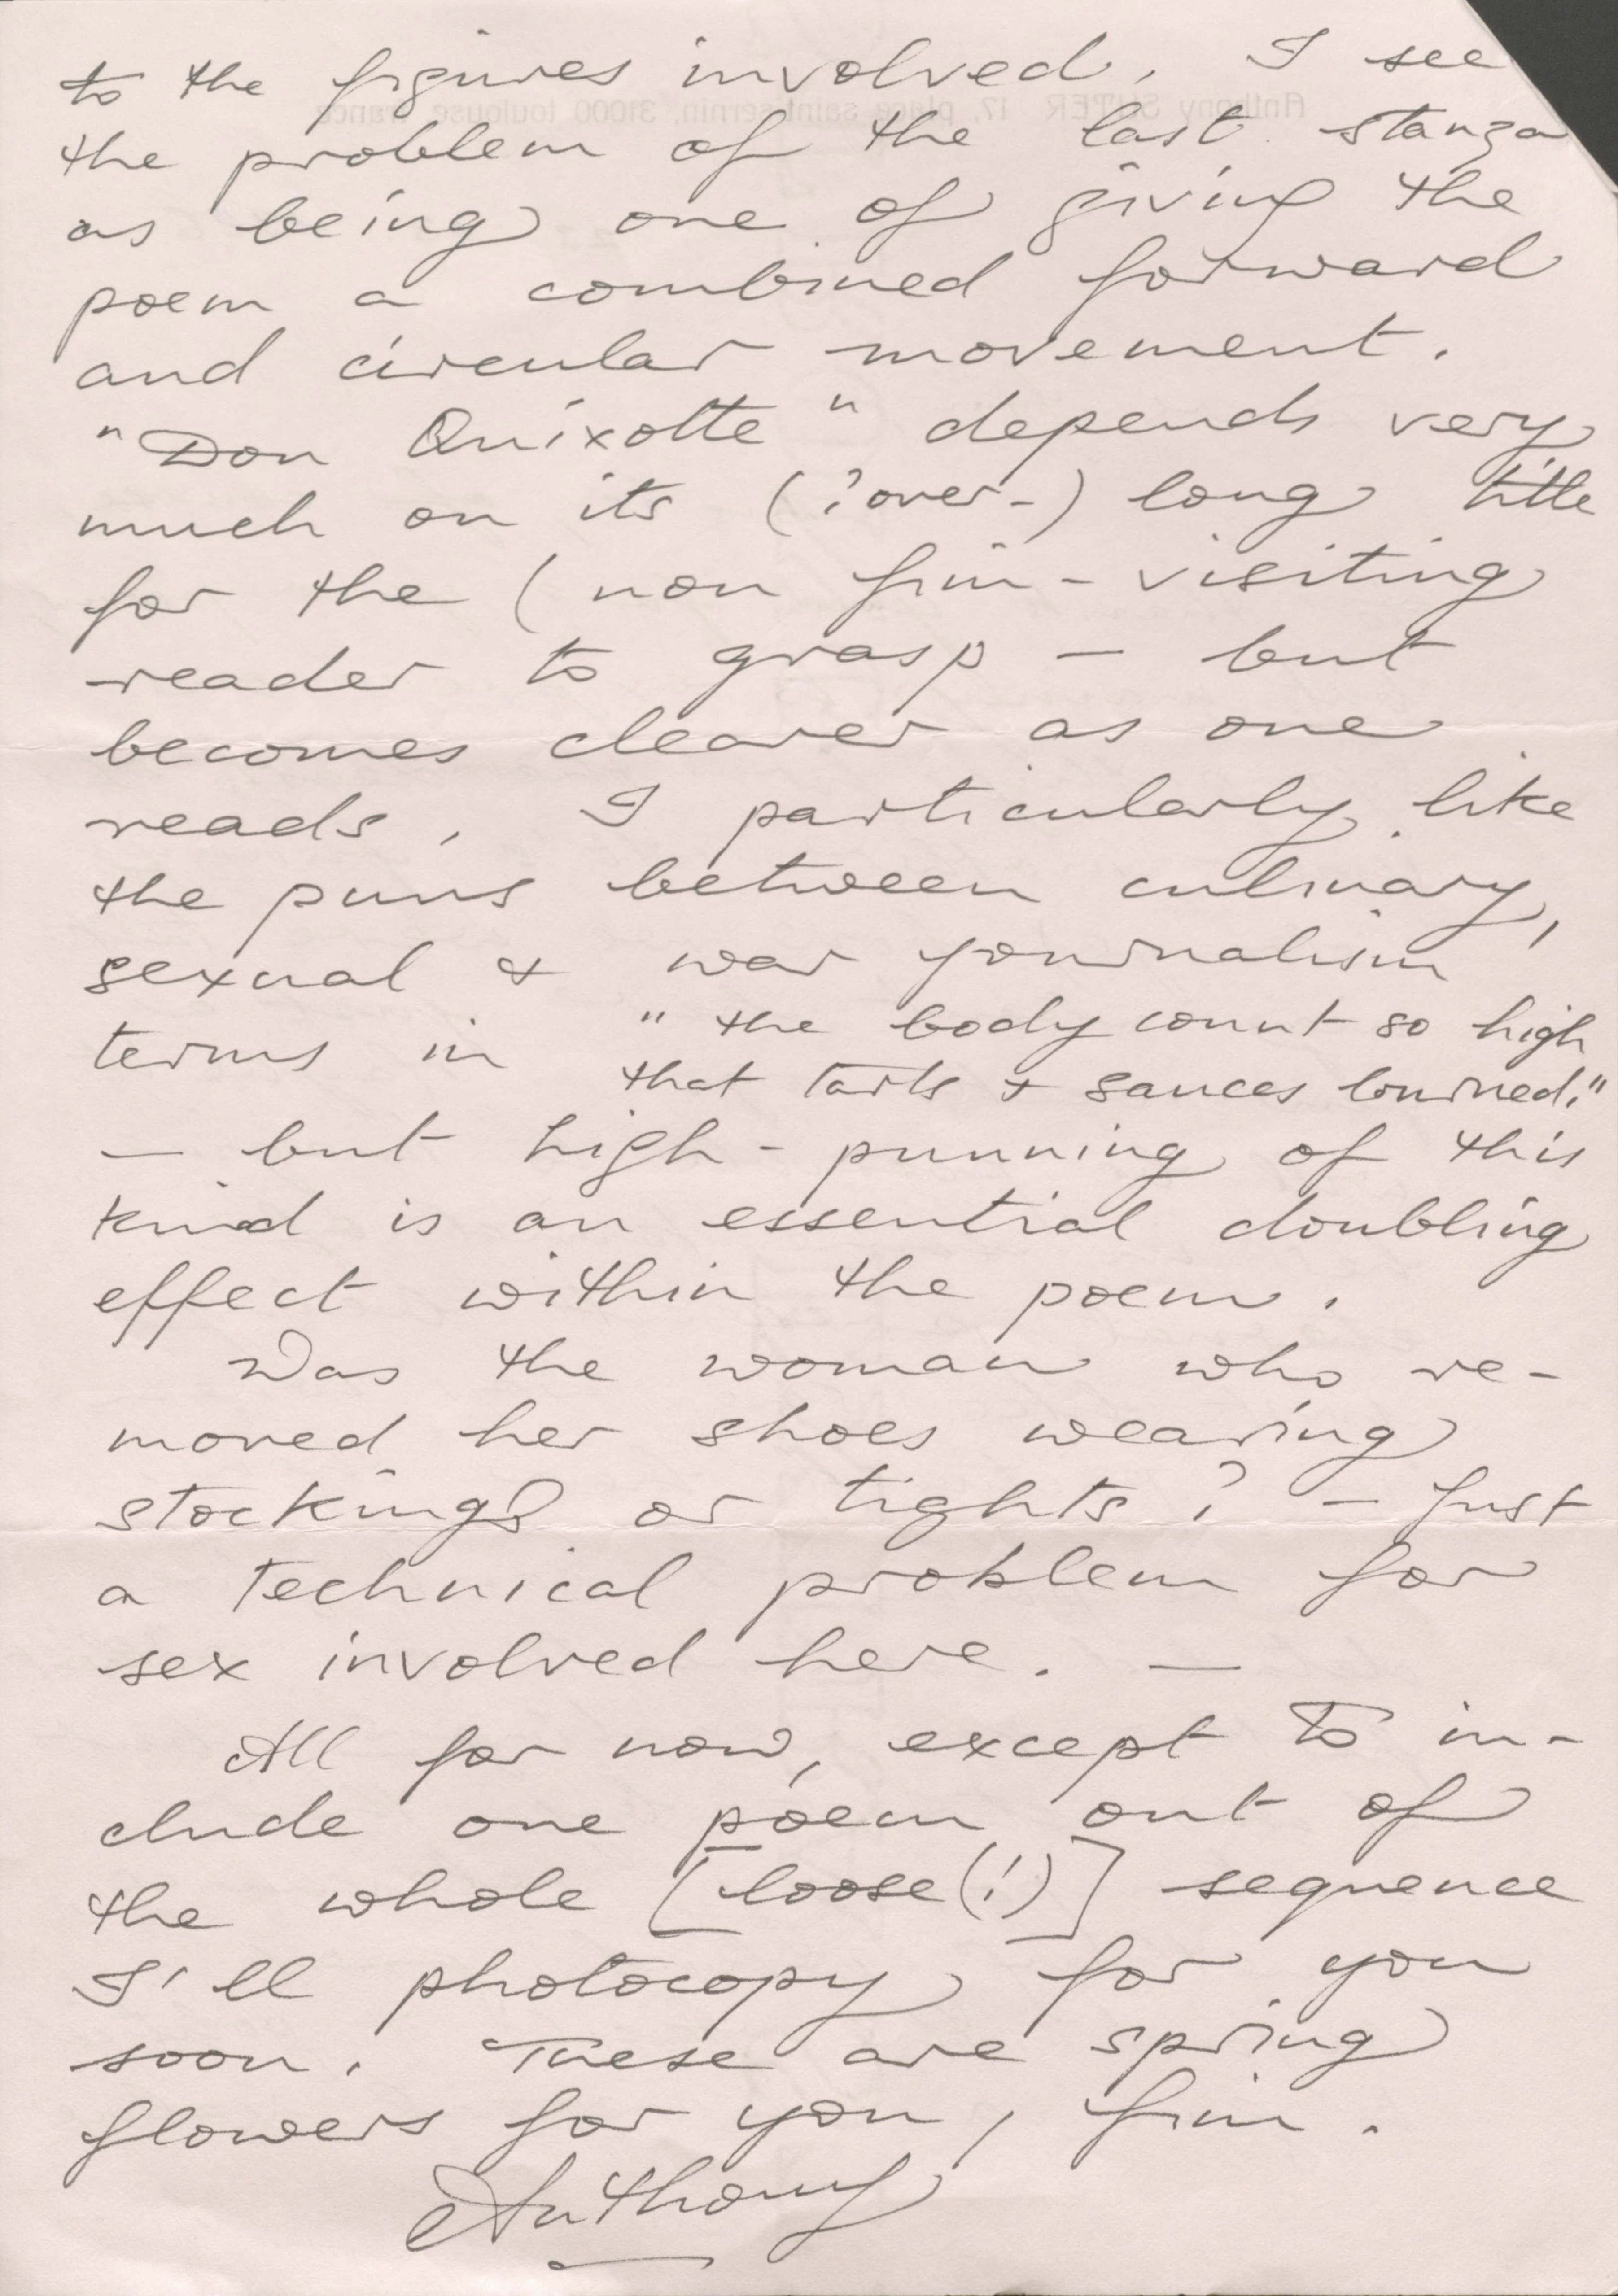 to the figures involved. I see
Anthony SUTER 17, place saint sernin, 31000 toulouse france
the problem of the last stanza
as being one of giving the
poem a combined forward
and circular movement.
"Don Quixotte" depends very
much on its (?over-) long title
for the (non Jim-visiting
reader to grasp — but
becomes clearer as one
reads. I particularly like
the puns between culinary,
sexual & war journalism
terms in "the body count so high
that tarts & sauces burned."
— but high-punning of this
kind is an essential doubling
effect within the poem.
Was the woman who re-
moved her shoes wearing
stockings or tights? — Just
a technical problem for
sex involved here. —
All for now, except to in-
clude one poem out of
the whole [loose(!)] sequence
I'll photocopy for you
soon. These are spring
flowers for you, Jim.
Anthony